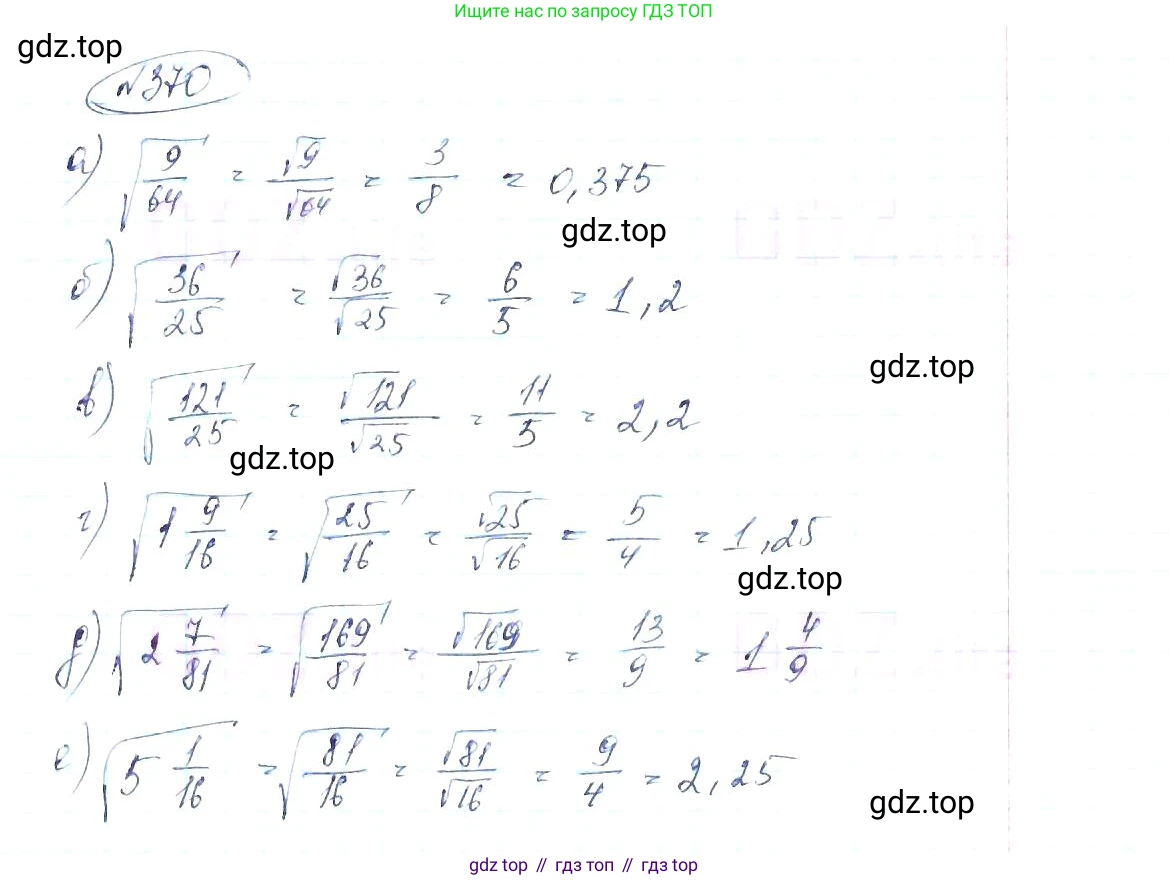 Ищите нас по запросу ГДЗ ТОП
gdz.top
№370
а) √(9/64) = √9/√64 = 3/8 = 0,375
gdz.top
б) √(36/25) = √36/√25 = 6/5 = 1,2
gdz.top
в) √(121/25) = √121/√25 = 11/5 = 2,2
gdz.top
г) √(1 9/16) = √(25/16) = √25/√16 = 5/4 = 1,25
gdz.top
д) √(2 7/81) = √(169/81) = √169/√81 = 13/9 = 1 4/9
е) √(5 1/16) = √(81/16) = √81/√16 = 9/4 = 2,25
gdz.top
gdz top // гдз топ // гдз top